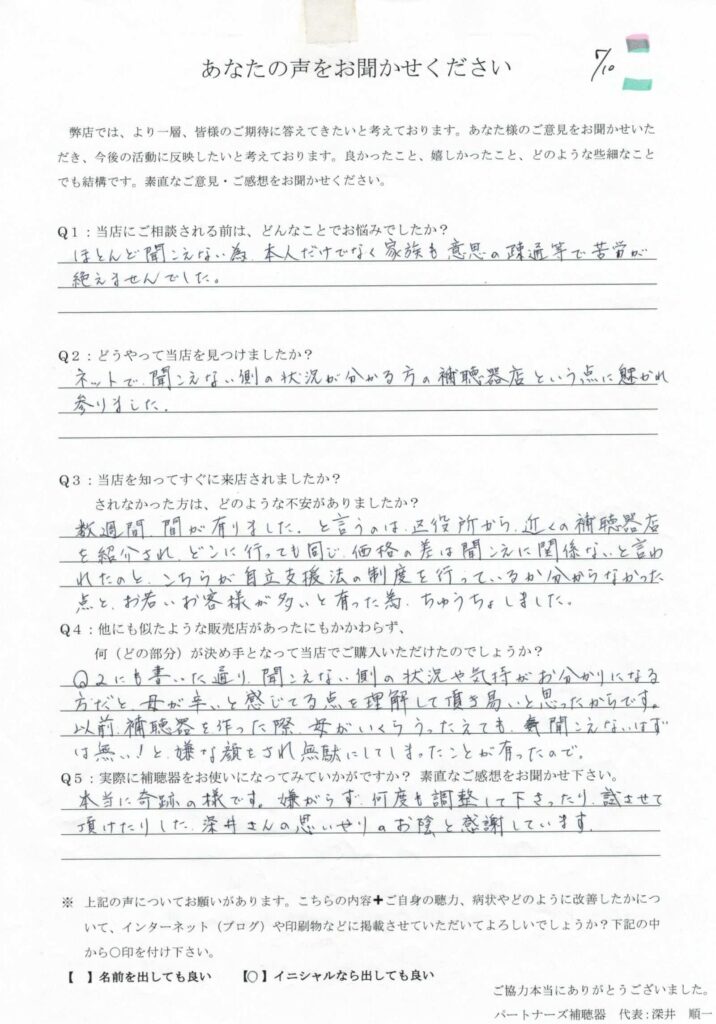 あなたの声をお聞かせください
7/10
弊店では、より一層、皆様のご期待に答えてきたいと考えております。あなた様のご意見をお聞かせいた
だき、今後の活動に反映したいと考えております。良かったこと、嬉しかったこと、どのような些細なこと
でも結構です。素直なご意見・ご感想をお聞かせください。
Q1：当店にご相談される前は、どんなことでお悩みでしたか？
ほとんど聞こえない為、本人だけでなく家族も意思の疎通等で苦労が
絶えませんでした。
Q2：どうやって当店を見つけましたか？
ネットで、聞こえない側の状況が分かる方の補聴器店という点に魅かれ
参りました。
Q3：当店を知ってすぐに来店されましたか？
されなかった方は、どのような不安がありましたか？
数週間、間が有りました。と言うのは、区役所から、近くの補聴器店
を紹介され、どこに行っても同じ、価格の差は聞こえに関係ないと言わ
れたのと、こちらが自立支援法の制度を行っているか分からなかった
点と、お若いお客様が多いと有った為、ちゅうちょしました。
Q4：他にも似たような販売店があったにもかかわらず、
何（どの部分）が決め手となって当店でご購入いただけたのでしょうか？
Q2にも書いた通り、聞こえない側の状況や気持がお分かりになる
方だと、母が辛いと感じてる点を理解して頂き易いと思ったからです。
以前、補聴器を作った際、母がいくらうったえても、聞こえないはず
は無い！と、嫌な顔をされ無駄にしてしまったことが有ったので。
Q5：実際に補聴器をお使いになってみていかがですか？ 素直なご感想をお聞かせ下さい。
本当に奇跡の様です。嫌がらず、何度も調整して下さったり、試させて
頂けたりした、深井さんの思いやりのお陰と感謝しています。
※ 上記の声についてお願いがあります。こちらの内容＋ご自身の聴力、病状やどのように改善したかにつ
いて、インターネット（ブログ）や印刷物などに掲載させていただいてよろしいでしょうか？下記の中
から〇印を付け下さい。
【 】名前を出しても良い 【○】イニシャルなら出しても良い
ご協力本当にありがとうございました。
パートナーズ補聴器 代表：深井 順一